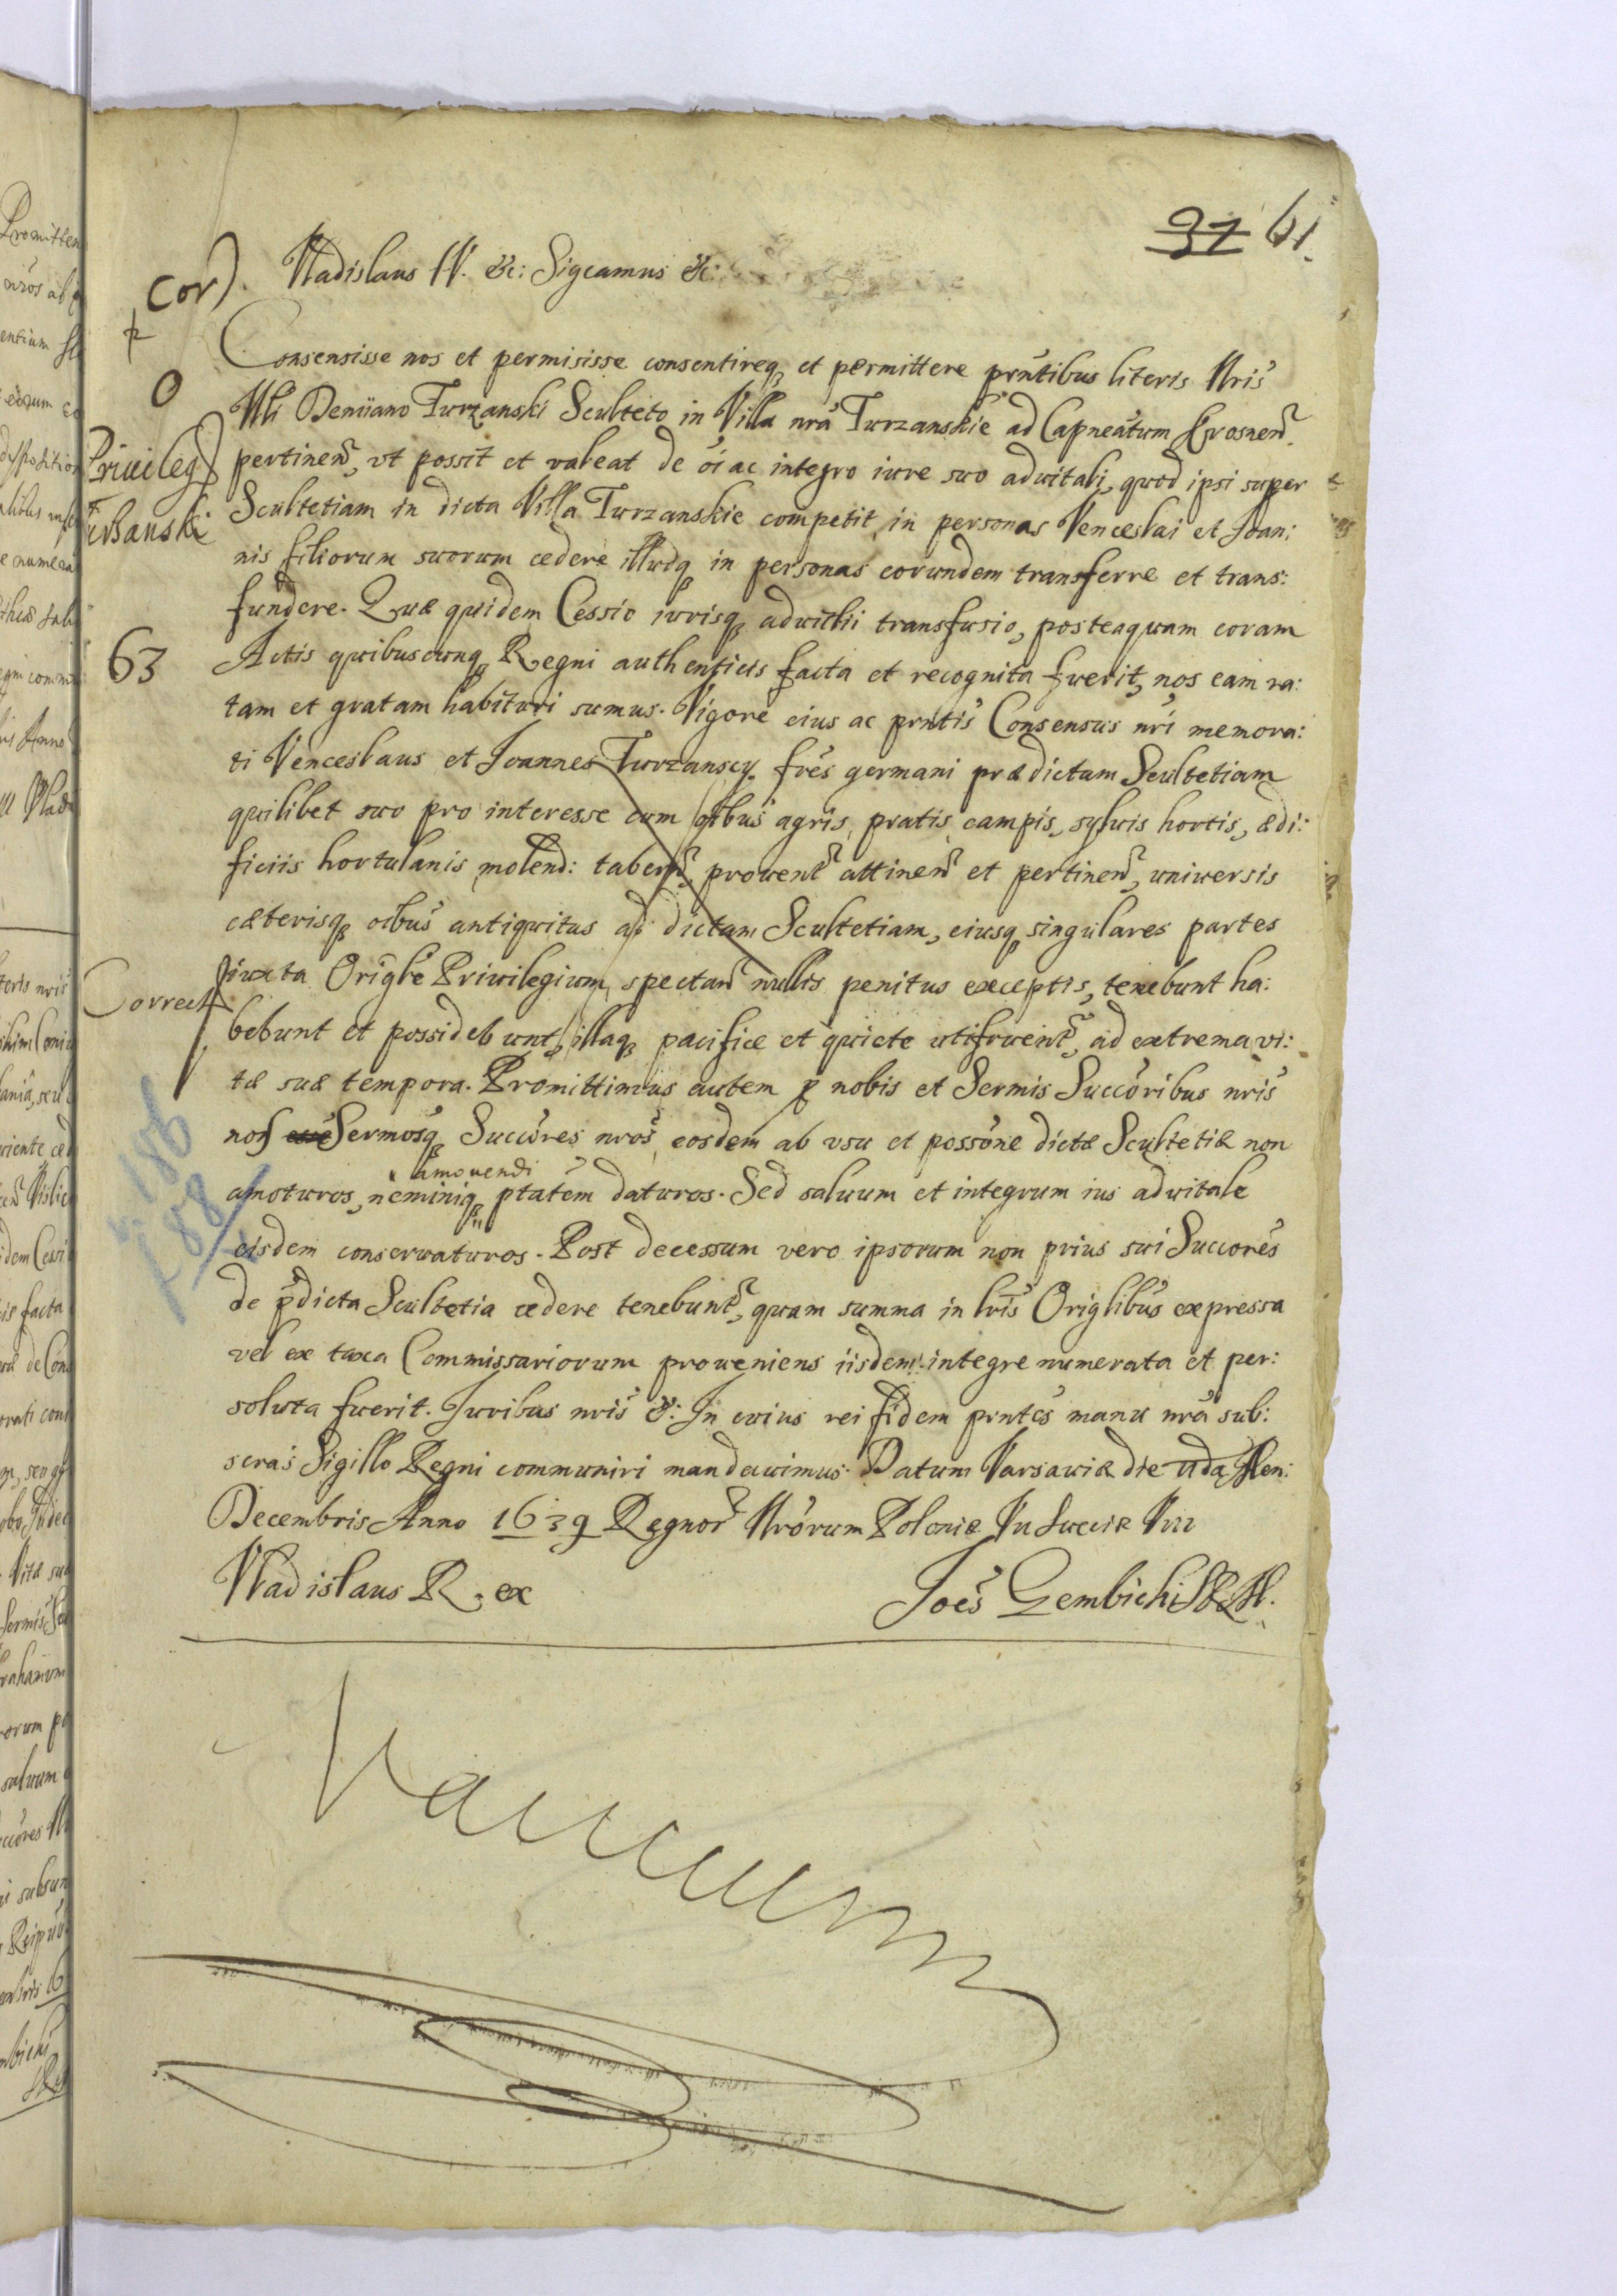 37 61.
Cor). Vladislaus IV. &c: Sigcamus &c
Consensisse nos et permisisse consentireq et permittere prntibus literis Nris
Nli Demiano Turzanski Sculteto in Villa nra Turzanskie ad Capneatum Crosnen.
Priuileg pertinen, vt possit et valeat de oi ac integro iure suo aduitali, quod ipsi super
Scultetiam in dicta Villa Turzanskie competit, in personas Venceslai et Joan:
nis filiorum suorum cedere illudq in personas eorundem transferre et trans:
fundere. Quæ quidem Cessio iurisq aduitlii transfusio, posteaquam coram
63 Actis quibuscunq Regni authenticis facta et recognita fuerit, nos eam ra:
tam et gratam habituri sumus. Vigore eius ac prntis Consensus nri memora:
ti Venceslaus et Joannes Turzanscy fres germani prædictam Scultetiam
quilibet suo pro interesse cum oibus agris, pratis campis, syluis hortis, ædi:
ficiis hortulanis molend: tabern, prouent attinen et pertinen, vniuersis
cæterisq oibus antiquitus ad dictam Scultetiam, eiusq singulares partes
Correct iuxta Origle Priuilegium, spectan nullis penitus exceptis, tenebunt ha:
bebunt et possidebunt, illaq pacifice et quiete utifruent, ad extrema vi:
tæ suæ tempora. Promittimus autem p nobis et Sermis Succoribus nris
nos Sermosq Succores nros eosdem ab vsu et possone dictæ Scultetiæ non
amouendi
amoturos, neminiq ptatem daturos. Sed saluum et integrum ius aduitale
eisdem conseruaturos. Post decessum vero ipsorum non prius sui Succores
de pdicta Scultetia cedere tenebunt, quam summa in lris Origlibus expressa
vel ex taxa Commissariorum proueniens iisdem integre numerata et per:
soluta fuerit. Juribus nris &: In cuius rei fidem prntes manu nra sub:
scras Sigillo Regni communiri mandauimus. Datum Varsauiæ die IIda Men:
Decembris Anno 1639 Regnor Nrorum Poloniæ VII Sueciæ VIII
Vladislaus R. ex
Joes Gembicki
Vacuum